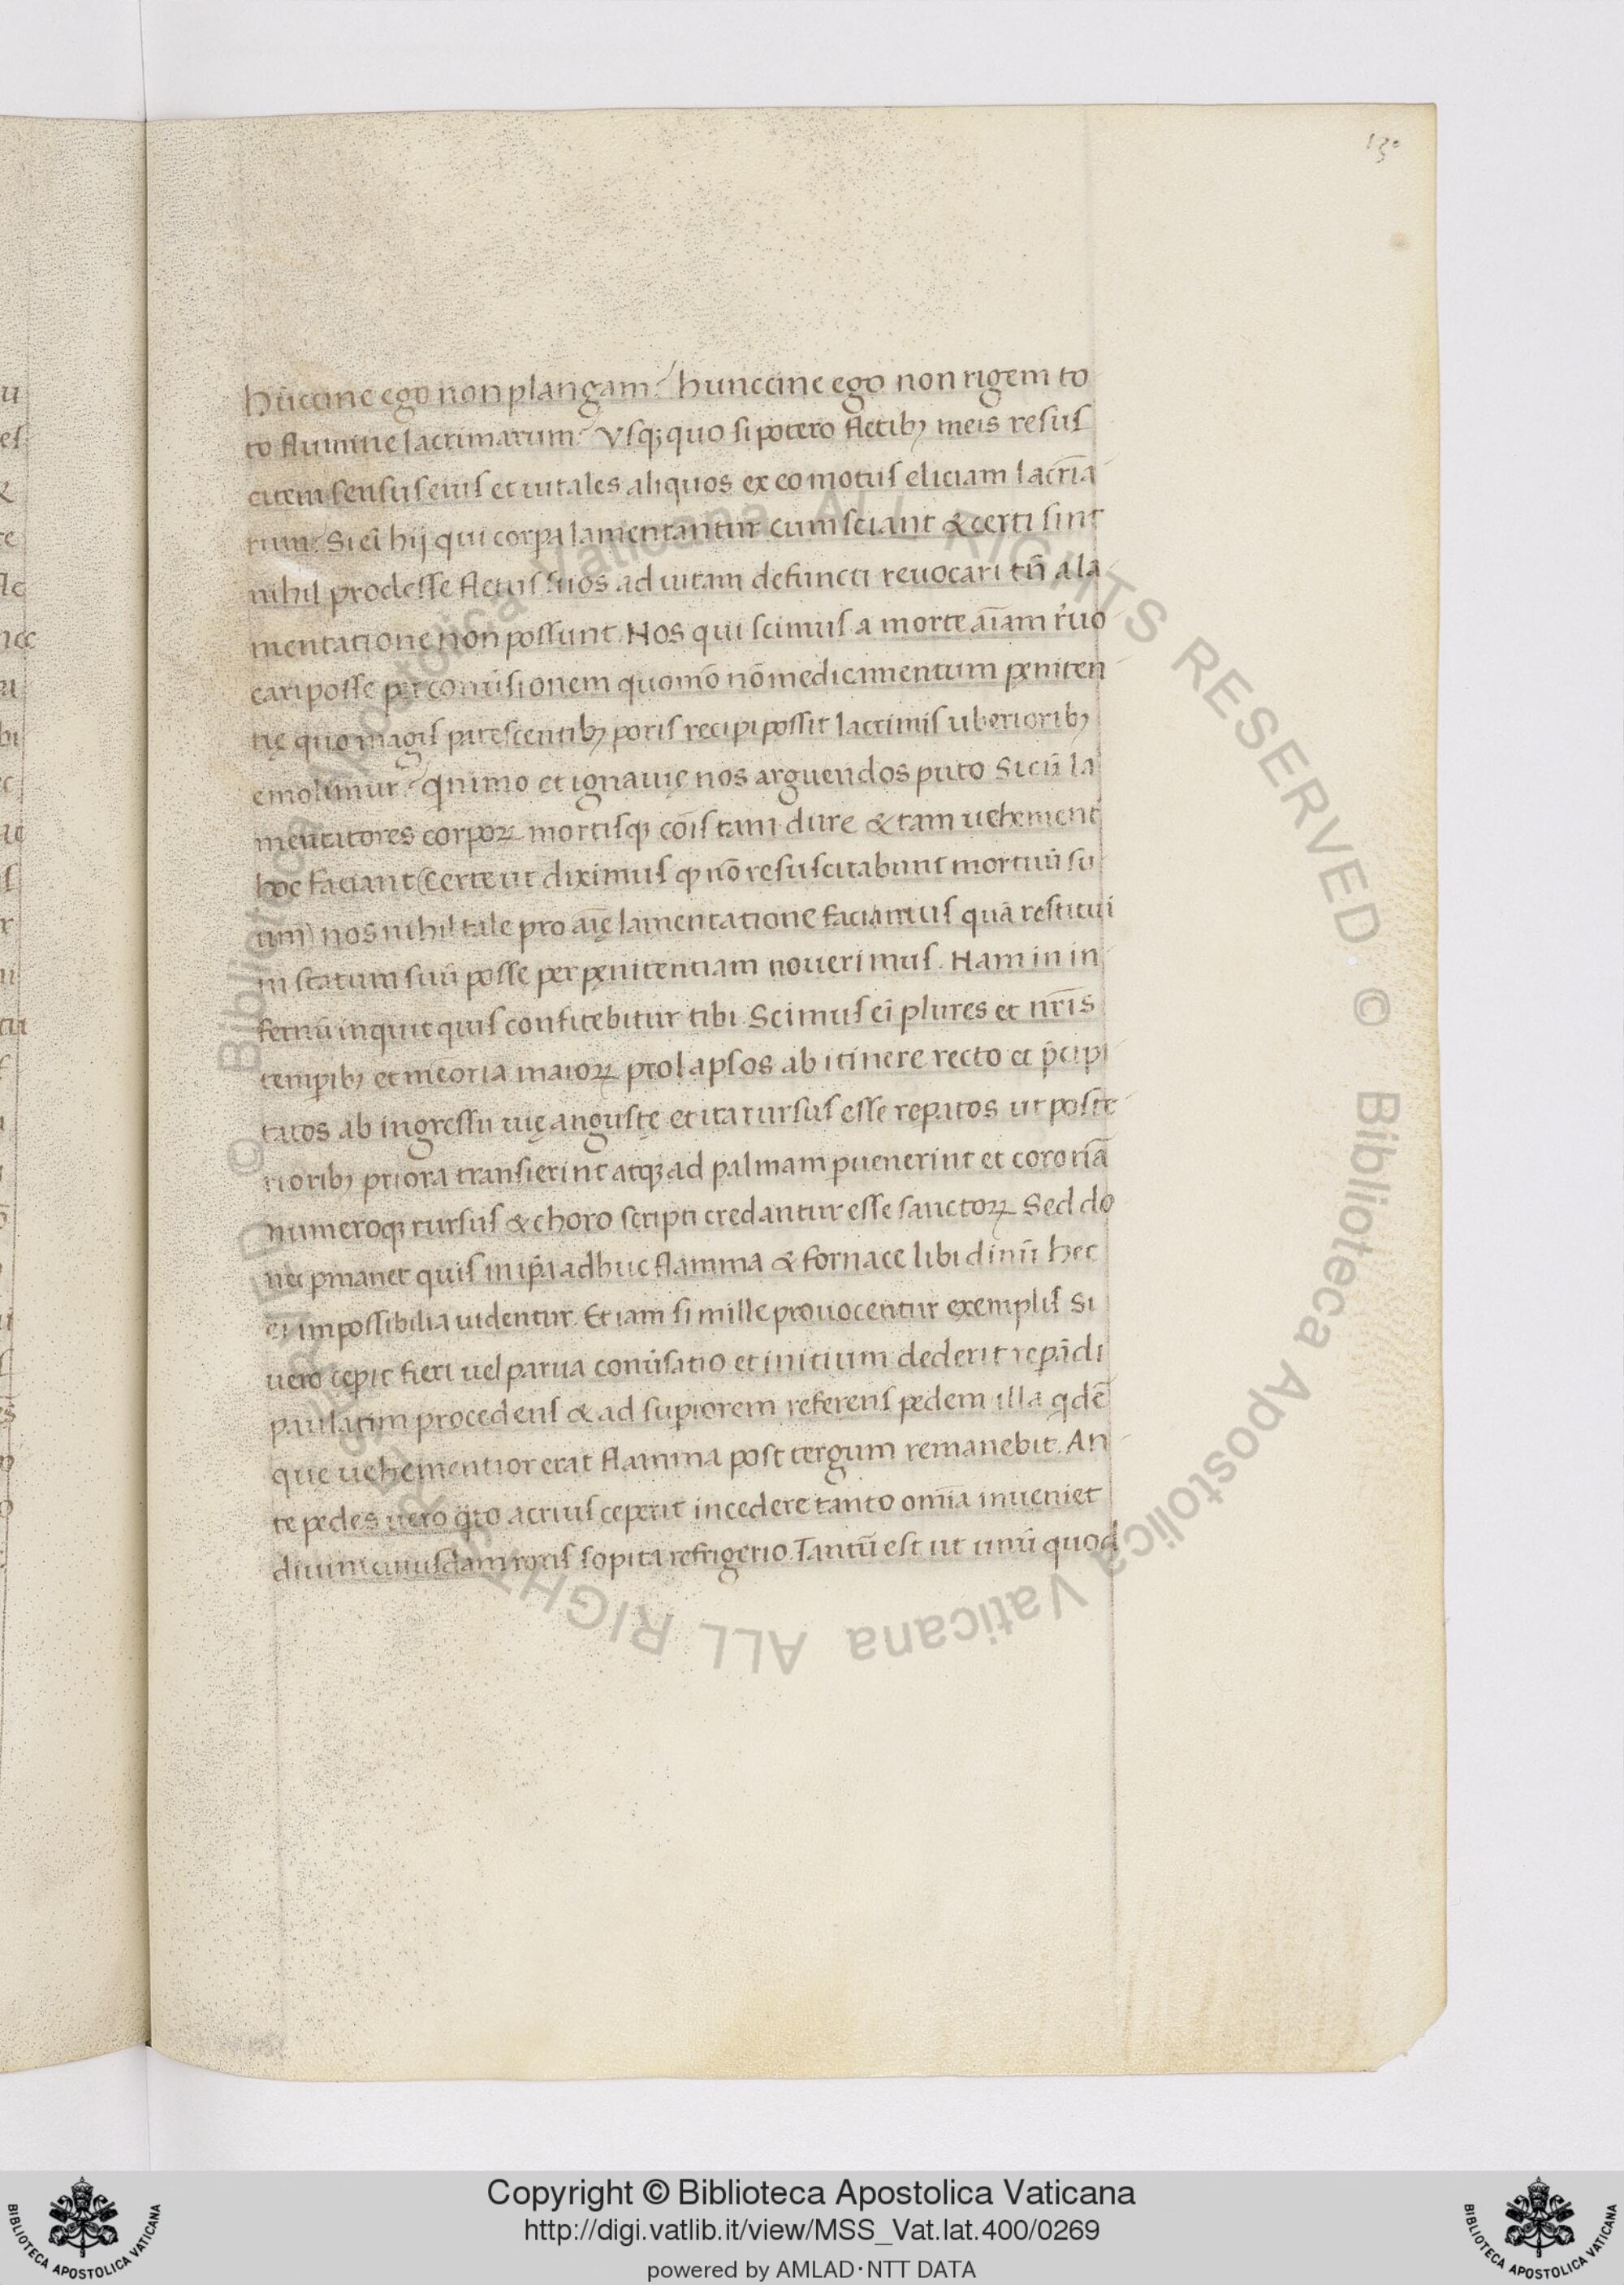 130
hūccine ego non plangam? hunccine ego non rigem to
to flumine lacrimarum? Vsq; quo si potero fletib; meis resus
citem sensus eius et uitales aliquos ex eo motus eliciam lacr̄ia
rum. Si ei̅ hij qui corpa lamentantur cum sciant & certi sint
nihil prodesse fletus suos ad uitam defuncti reuocari tn̄ a la
mentatione non possunt. Nos qui scimus a morte ai̅am r̓uo
cari posse per conu̓sionem quomō nō medicamentum peniten
tię quo magis patescentib; poris recipi possit lacrimis uberiorib;
emolimur? qnimo et ignauię nos arguendos puto Si cū la
mentatores corpoꝝ mortisq; cōis tam dure & tam uehement̓
hoc faciant (Certe ut diximus ꝙ nō resuscitabunt mortuū su
um) nos nihil tale pro ai̅ę lamentatione faciamus quā restitui
in statum suū posse per pęnitentiam nouerimus. Nam in in
fernū inquit quis confitebitur tibi. Scimus ei̅ plures et nr̄is
tempib; et meoria maioꝝ prolapsos ab itinere recto et p̄cipi
tatos ab ingressu uię angustę et ita rursus esse repatos ut poste
riorib; priora transierint atq; ad palmam puenerint et coronā
numeroq; rursus & choro scripti credantur esse sanctoꝝ Sed do
nec pmanet quis in ip̄a adhuc flamma & fornace libidinū hec
ei impossibilia uidentur. Etiam si mille prouocentur exemplis Si
uero ceperit fieri uel parua conu̓satio et initium dederit repādi
paulatim procedens & ad supiorem referens pedem illa qdē
que uehementior erat flamma post tergum remanebit. An
te pedes uero qto acrius ceperit incedere tanto om̅ia inueniet
diuini cuiusdam roris sopita refrigerio. Tantū est ut unū quod
© Biblioteca Apostolica Vaticana ALL RIGHTS RESERVED
© Biblioteca Apostolica Vaticana ALL RIGHTS RESERVED
Copyright © Biblioteca Apostolica Vaticana
http://digi.vatlib.it/view/MSS_Vat.lat.400/0269
powered by AMLAD·NTT DATA
BIBLIOTECA APOSTOLICA VATICANA
BIBLIOTECA APOSTOLICA VATICANA